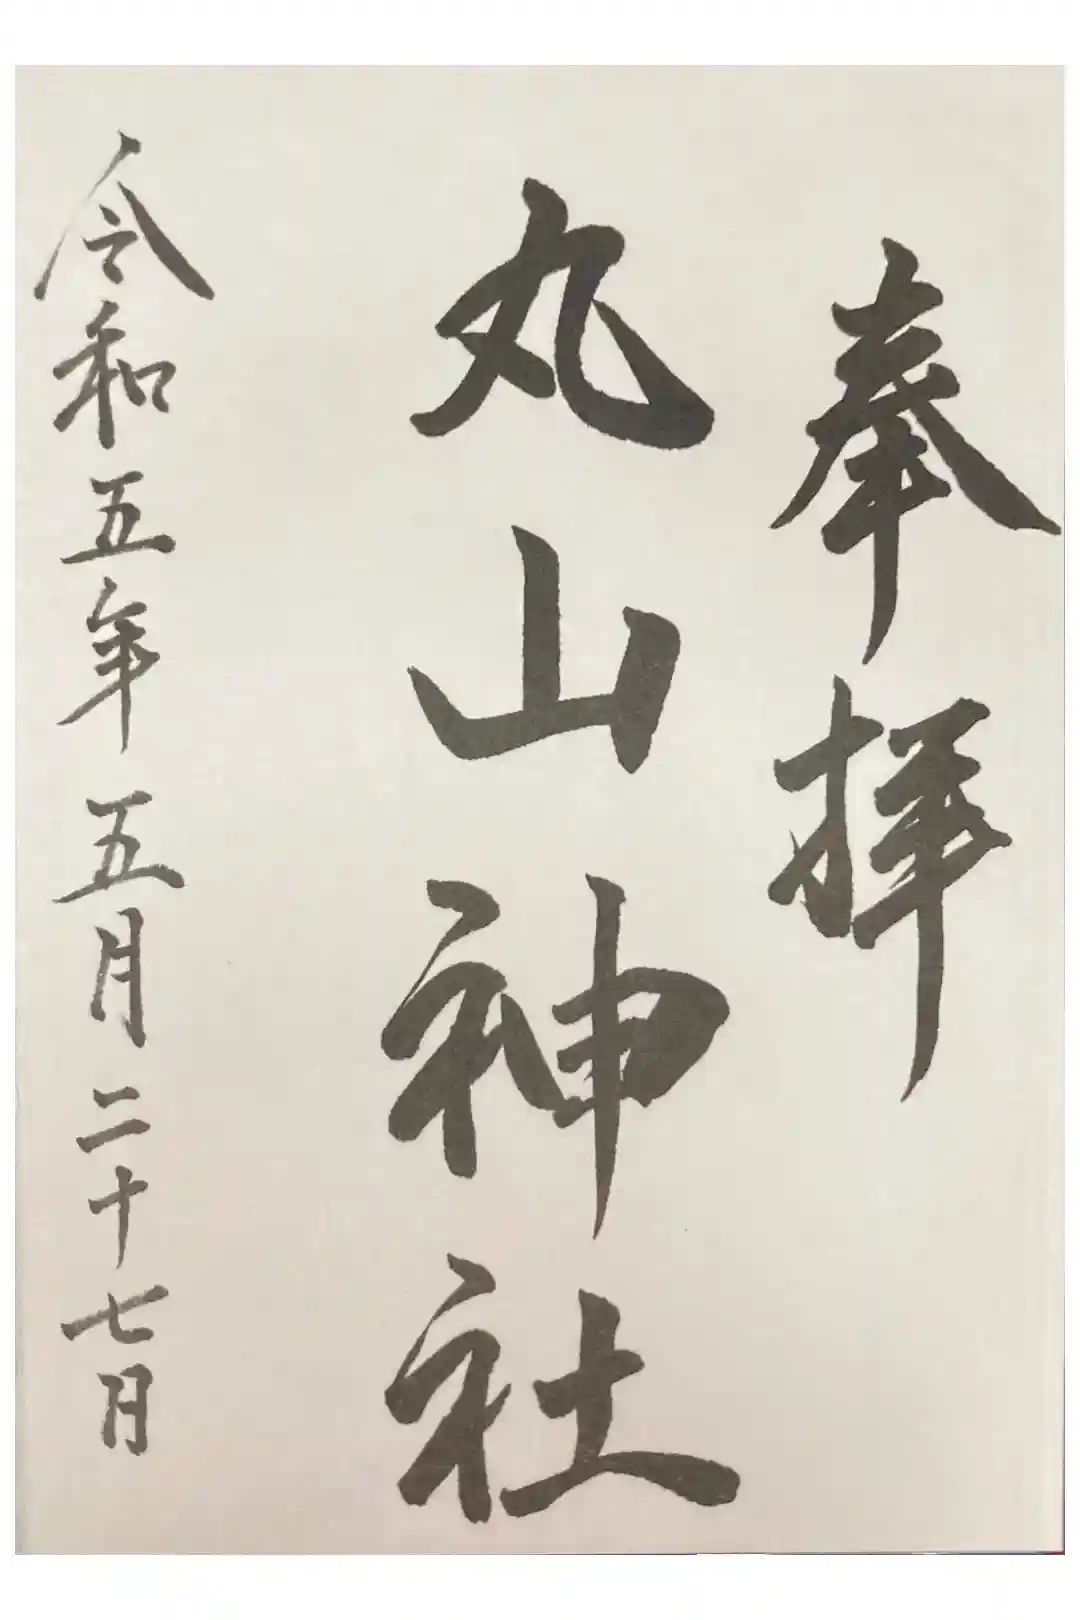 奉拝
丸山神社
令和五年五月二十七日